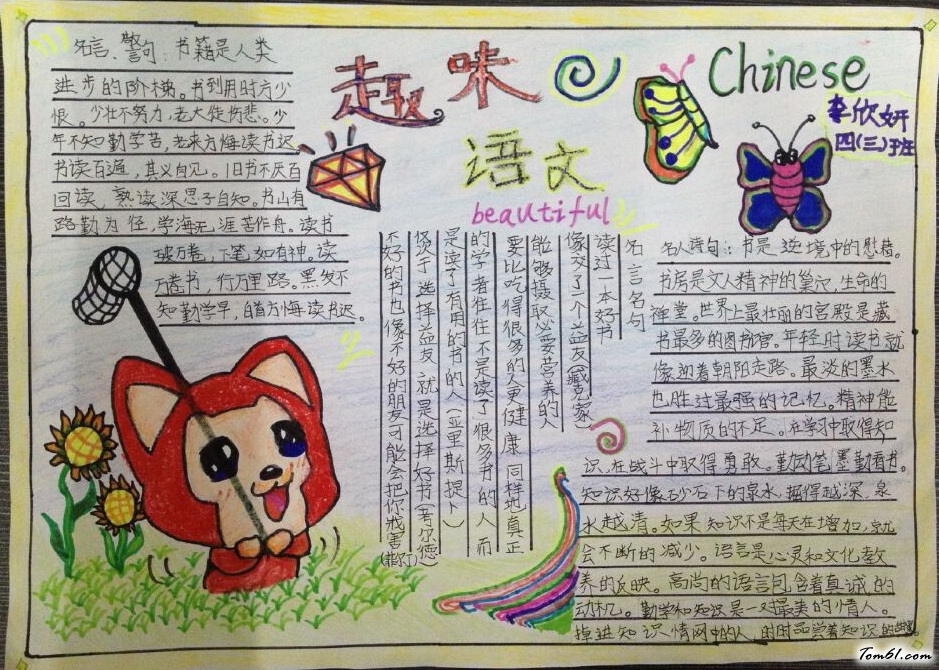 趣味
语文
beautiful
Chinese
李欣妍
四(三)班
名言、警句：书籍是人类
进步的阶梯。书到用时方少
恨。少壮不努力，老大徒伤悲。少
年不知勤学苦，老来方悔读书迟
书读百遍，其义自见。旧书不厌百
回读，熟读深思子自知。书山有
路勤为径，学海无涯苦作舟。读书
破万卷，下笔如有神。读
万卷书，行万里路。黑发不
知勤学早，白首方悔读书迟。
名言名句
读过一本好书
像交了一个益友(臧克家
能够摄取必要营养的人
要比吃得很多的人更健康同样地真正
的学者往往不是读了很多书的人而
是读了有用的书的人(亚里斯提卜)
贤于选择益友就是选择好书(考尔德
不好的书也像不好的朋友可能会把你戕害
名人诗句：书是逆境中的慰藉。
书房是文人精神的巢穴，生命的
禅堂。世界上最壮丽的宫殿是藏
书最多的图书馆。年轻时读书就
像迎着朝阳走路。最淡的墨水
也胜过最强的记忆。精神能
补物质的不足。在学习中取得知
识，在战斗中取得勇敢。勤动笔墨勤看书。
知识好像石少石下的泉水，掘得越深，泉
水越清。如果知识不是每天在增加，就
会不断的减少。语言是心灵和文化教
养的反映。高尚的语言包含着真诚的
动机。勤学和知识是一对最美的情人。
掉进知识情网中的人，时时品尝着知识的
Tom61.com